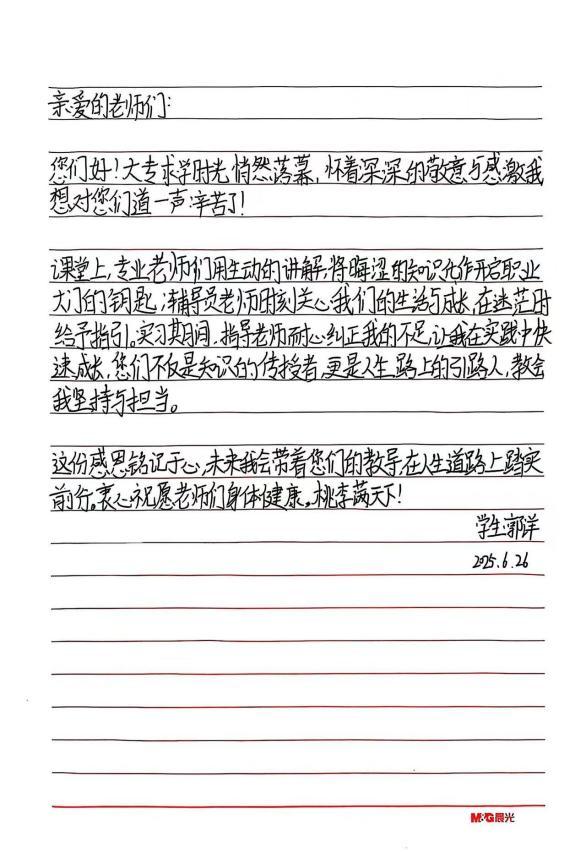 亲爱的老师们:
您们好!大专求学时光悄然落幕,怀着深深的敬意与感激我
想对您们道一声:辛苦了!
课堂上,专业老师们用生动的讲解,将晦涩的知识化作开启职业
大门的钥匙;辅导员老师时刻关心我们的生活与成长,在迷茫时
给予指引。实习期间,指导老师耐心纠正我的不足,让我在实践中快
速成长,您们不仅是知识的传授者,更是人生路上的引路人,教会
我坚持与担当。
这份感恩铭记于心,未来我会带着您们的教导,在人生道路上踏实
前行。衷心祝愿老师们身体健康,桃李满天下!
学生:郭洋
2025.6.26
M&G晨光